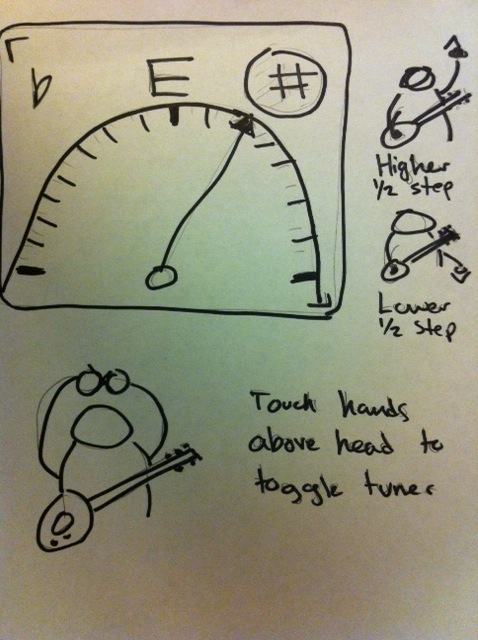 b E #
Higher
1/2 step
Lower
1/2 step
Touch hands
above head to
toggle tuner